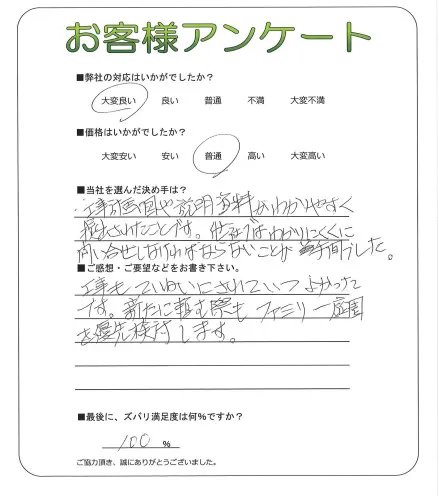 お客様アンケート
■弊社の対応はいかがでしたか?
大変良い 良い 普通 不満 大変不満
■価格はいかがでしたか?
大変安い 安い 普通 高い 大変高い
■当社を選んだ決め手は?
工事計画図や説明資料がわかりやすく
提出されたことです。他社ではわかりにくくに
問い合せしなければならないことが 手間でした。
■ご感想・ご要望などをお書き下さい。
工事も ていねいにされていて よかった
です。新たに頼む際も ファミリー庭園
を優先検討します。
■最後に、ズバリ満足度は何%ですか?
100 %
ご協力頂き、誠にありがとうございました。